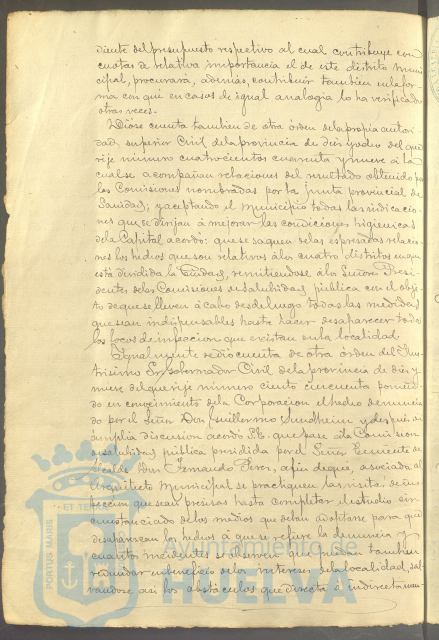 diente del presupuesto respectivo al cual contribuye con
cuotas de relativa importancia el de este distrito muni
cipal, procurará, además, contribuir tambien en la for
ma con que en casos de igual analogía lo ha verificado
otras veces.
Dióse cuenta tambien de otra órden de la propia autori
dad superior Civil de la provincia de diez y ocho del que
rije número cuatrocientos cuarenta y nueve á la
cual se acompañan relaciones del resultado obtenido por
las Comisiones nombradas por la Junta provincial de
Sanidad; y aceptando el municipio todas las indicacio
nes que se dirijan á mejorar las condiciones higienicas
de la Capital acordó: que se saquen de las espresadas relacio
nes los hechos que son relativos á los cuatro distritos en que
está dividida la Ciudad, remitiendose á los Señores Presi
dentes de las Comisiones de salubridad pública con el obje
to de que se lleven á cabo desde luego todas las medidas
que sean indispensables hasta hacer desaparecer todos
los focos de infeccion que existan en la localidad.
Igualmente se dió cuenta de otra órden del Ilus
trisimo Sr. Gobernador Civil de la provincia de diez y
nueve del que rije número ciento cincuenta ponien
do en conocimiento de la Corporacion el hecho denuncia
do por el Señor Don Guillermo Sundheim y despues de
amplia discusion acordó S.E. que pase á la Comision
de salubridad pública presidida por el Señor Teniente de
Alcalde Don Fernando Perez, á fin de que, asociada al
Arquitecto Municipal se practiquen las visitas de ins
peccion que sean precisas hasta completar el estudio cir
cunstanciado de los medios que deban adoptarse para que
desaparezcan los hechos á que se refiere la denuncia y
cuantos incidentes se observen que puedan tambien
redundar en beneficio de los intereses de la localidad, sal
vandose así los obstáculos que directa é indirectamen
PORTUS MARIS
ET TERRAE
Ayuntamiento de
HUELVA